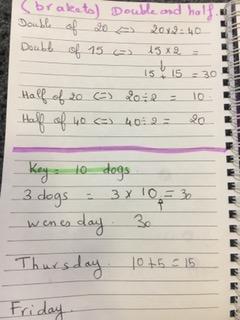 (brakets) Double and half
Double of 20 <=> 20x2=40
Double of 15 <=> 15x2 =
↓
15+15=30
Half of 20 <=> 20÷2 = 10
Half of 40 <=> 40÷2 = 20
Key = 10 dogs
3 dogs = 3 x 10 = 30
↑
wenes day. 30
Thursday. 10+5=15
Friday.